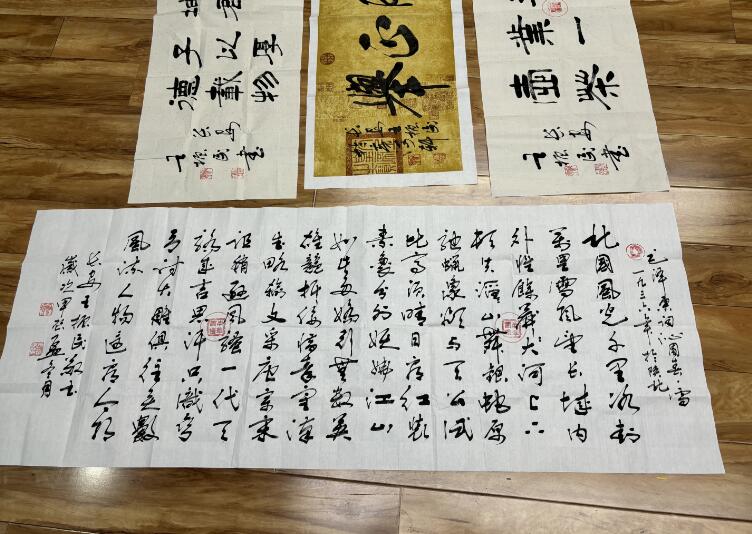 坤君
子以厚
德載物
长安
王振民书
正
长安王振民
業一
壺柴
长安
王振民书
毛泽东词沁园春·雪
一九三六年於陕北
北国风光千里冰封
万里雪飘望长城内
外惟餘莽莽大河上下
顿失滔滔山舞银蛇原
驰蜡象欲与天公试
比高须晴日看红装
素裹分外妖娆江山
如此多娇引无数英
雄竞折腰惜秦皇汉
武略输文采唐宗宋
祖稍逊风骚一代天
骄成吉思汗只识弯
弓射大雕俱往矣数
风流人物还看今朝
长安王振民敬书
岁次甲辰孟冬月